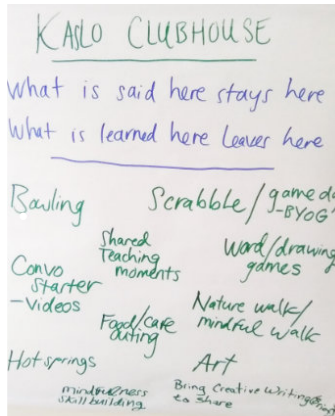 KASLO CLUBHOUSE
What is said here stays here
What is learned here leaves here
Bowling
Scrabble/game da
-BYOG
Shared
Teaching
moments
Word/drawing
games
Convo
Starter
-Videos
Nature walk/
mindful walk
Food/cafe
outing
Hot springs
Art
Bring Creative Writing
to share
mindfulness
skill building